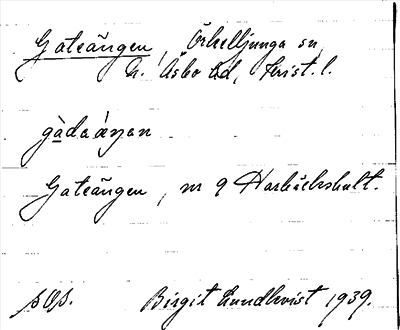 Gateängen, Örkelljunga sn,
N. Åsbo hd, Krist. l.
gàdaáŋən
Gateängen, nr 9 Harbäckshult.
Birgit Lundkvist 1939.